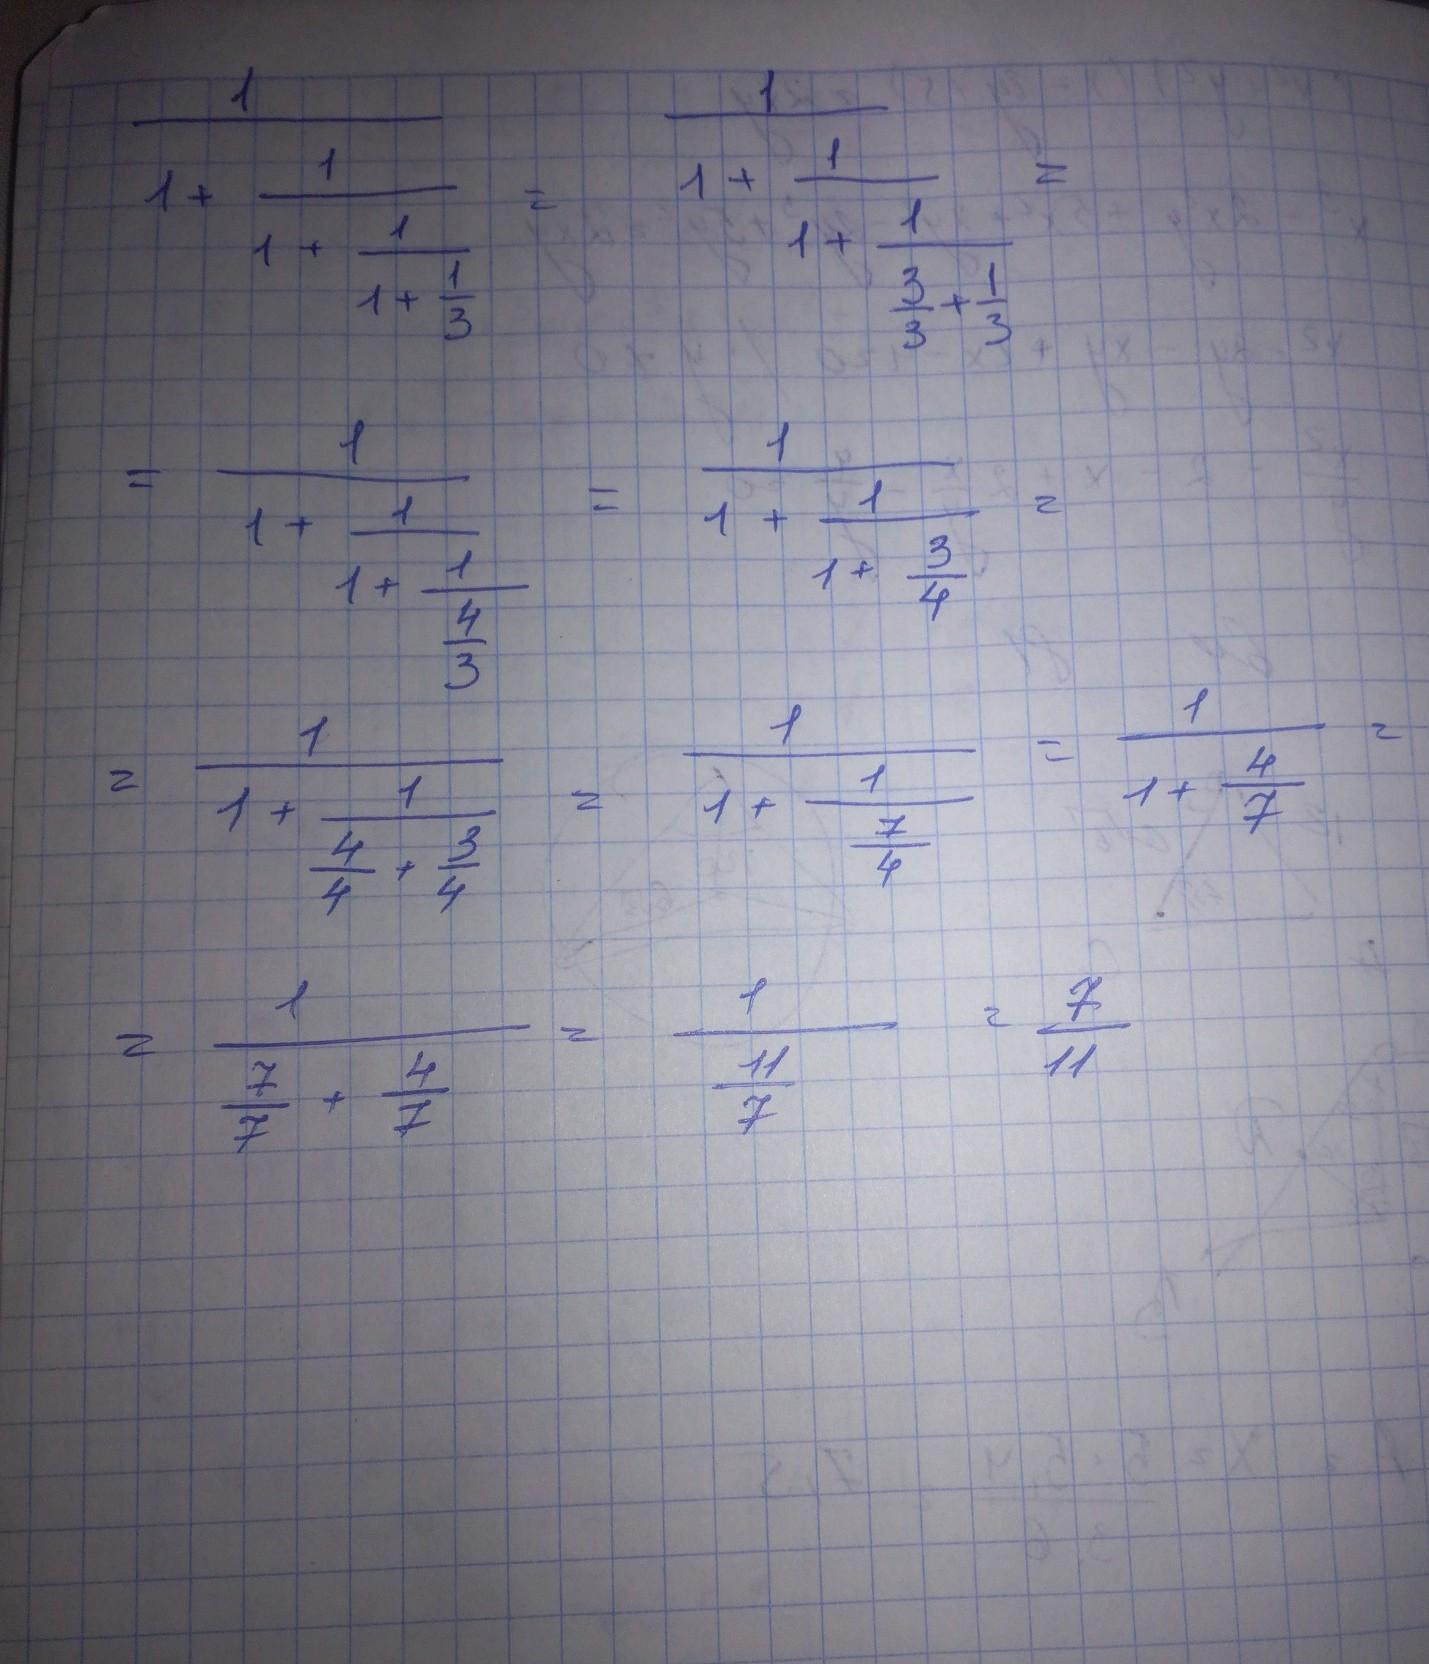 1 / (1 + 1 / (1 + 1 / (1 + 1/3))) = 1 / (1 + 1 / (1 + 1 / (3/3 + 1/3))) =
= 1 / (1 + 1 / (1 + 1 / (4/3))) = 1 / (1 + 1 / (1 + 3/4)) =
= 1 / (1 + 1 / (4/4 + 3/4)) = 1 / (1 + 1 / (7/4)) = 1 / (1 + 4/7) =
= 1 / (7/7 + 4/7) = 1 / (11/7) = 7/11